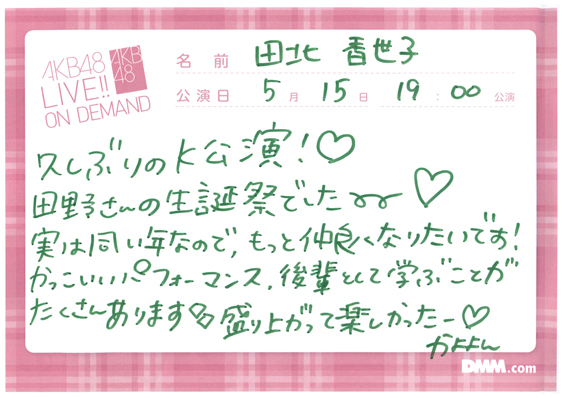 AKB48
LIVE!!
ON DEMAND
AKB
48
名前 田北 香世子
公演日 5月15日 19:00 公演
久しぶりのK公演!♡
田野さんの生誕祭でした ♡
実は同い年なので、もっと仲良くなりたいです!
かっこいいパフォーマンス、後輩として学ぶことが
たくさんあります 盛り上がって楽しかったー♡
かよよん
DMM.com